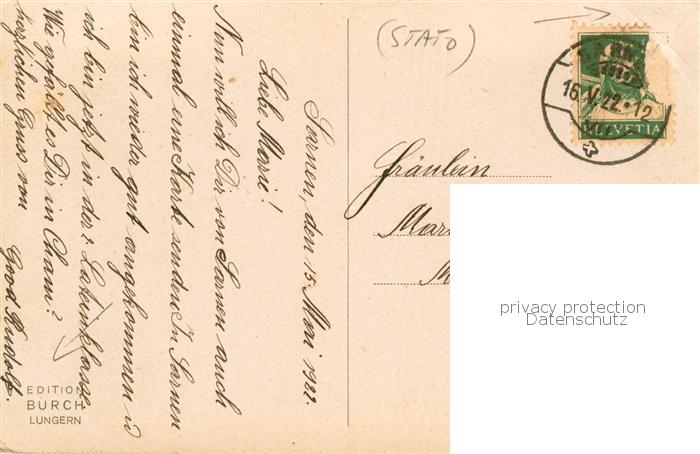 (STATO)
Sarnen, den 15. Mai 1922.
Liebe Marie!
Nun will ich Dir von Sarnen auch
einmal eine Karte senden. In Sarnen
bin ich wieder gut angekommen u
ich bin jetzt in der 2. Lateinklasse.
Wie gefällt es Dir in Cham?
herzlichen Gruss von
Rudolf.
Fräulein
Mar
M
16.V.22.-12
HELVETIA
EDITION
BURCH
LUNGERN
privacy protection
Datenschutz